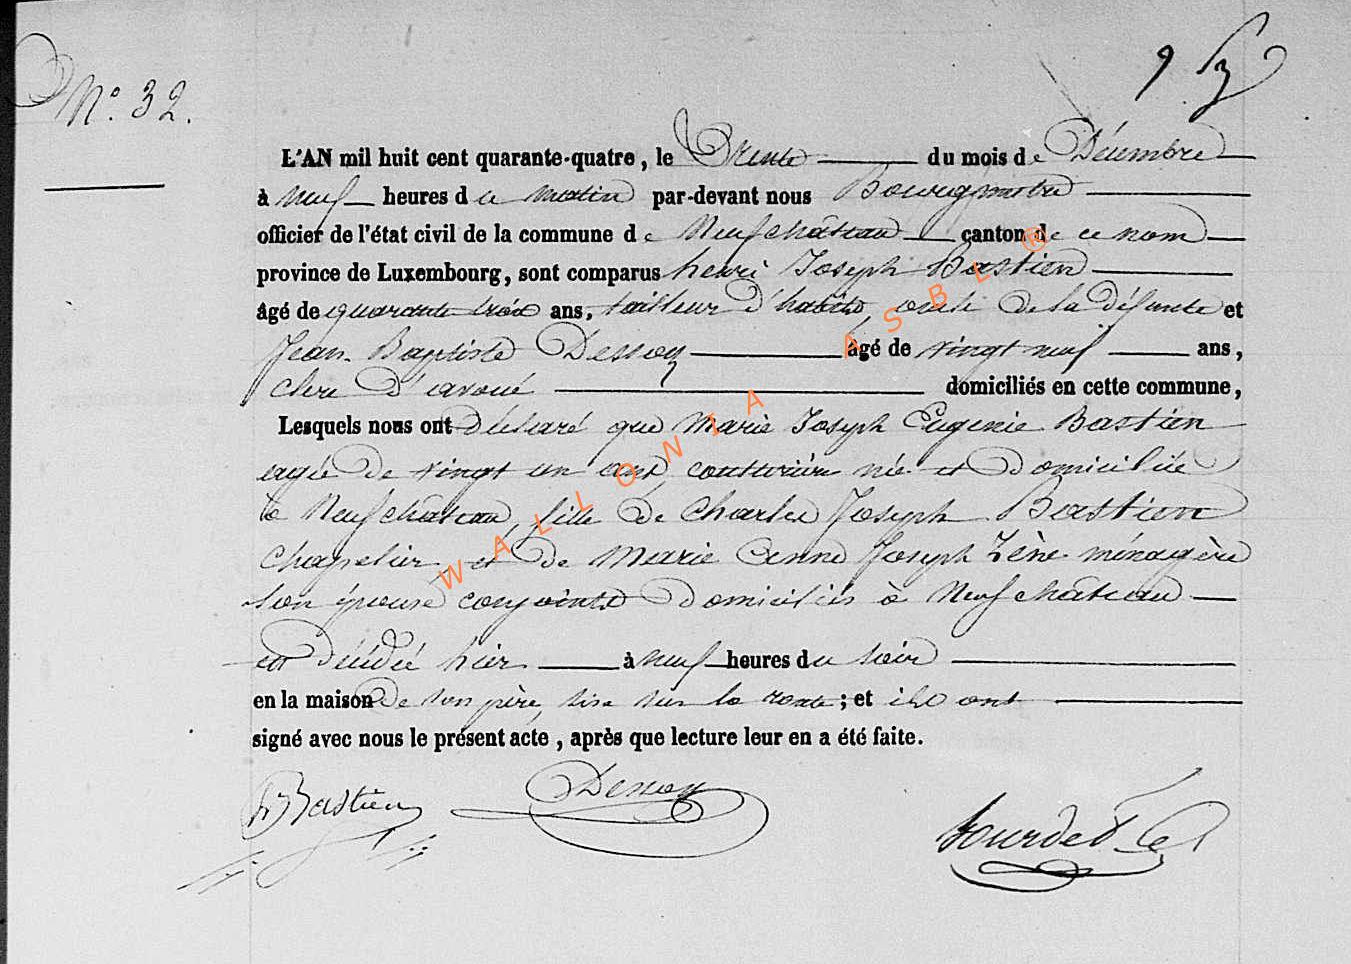 N.° 32.
L'AN mil huit cent quarante-quatre, le Trente du mois de Décembre
à neuf heures d u matin par-devant nous Bourgmestre
officier de l'état civil de la commune de Neufchâteau canton de ce nom
province de Luxembourg, sont comparus henri Joseph Bastien
âgé de quarante trois ans, tailleur d'habits, oncle de la défunte et
Jean-Baptiste Dessoy âgé de vingt neuf ans,
clerc d'avoué domiciliés en cette commune,
Lesquels nous ont déclaré que Marie Joseph Eugenie Bastien
agée de vingt un ans couturière née et domiciliée
à Neufchâteau, fille de Charles Joseph Bastien
Chapelier, et de Marie Anne Joseph Zène ménagère
son épouse conjoints domiciliés à Neufchâteau
est décédée hier à neuf heures du soir
en la maison de son père, sise sur la route; et ils ont
signé avec nous le présent acte, après que lecture leur en a été faite.
Bastien Dessoy
WALLONIA ASBL ®